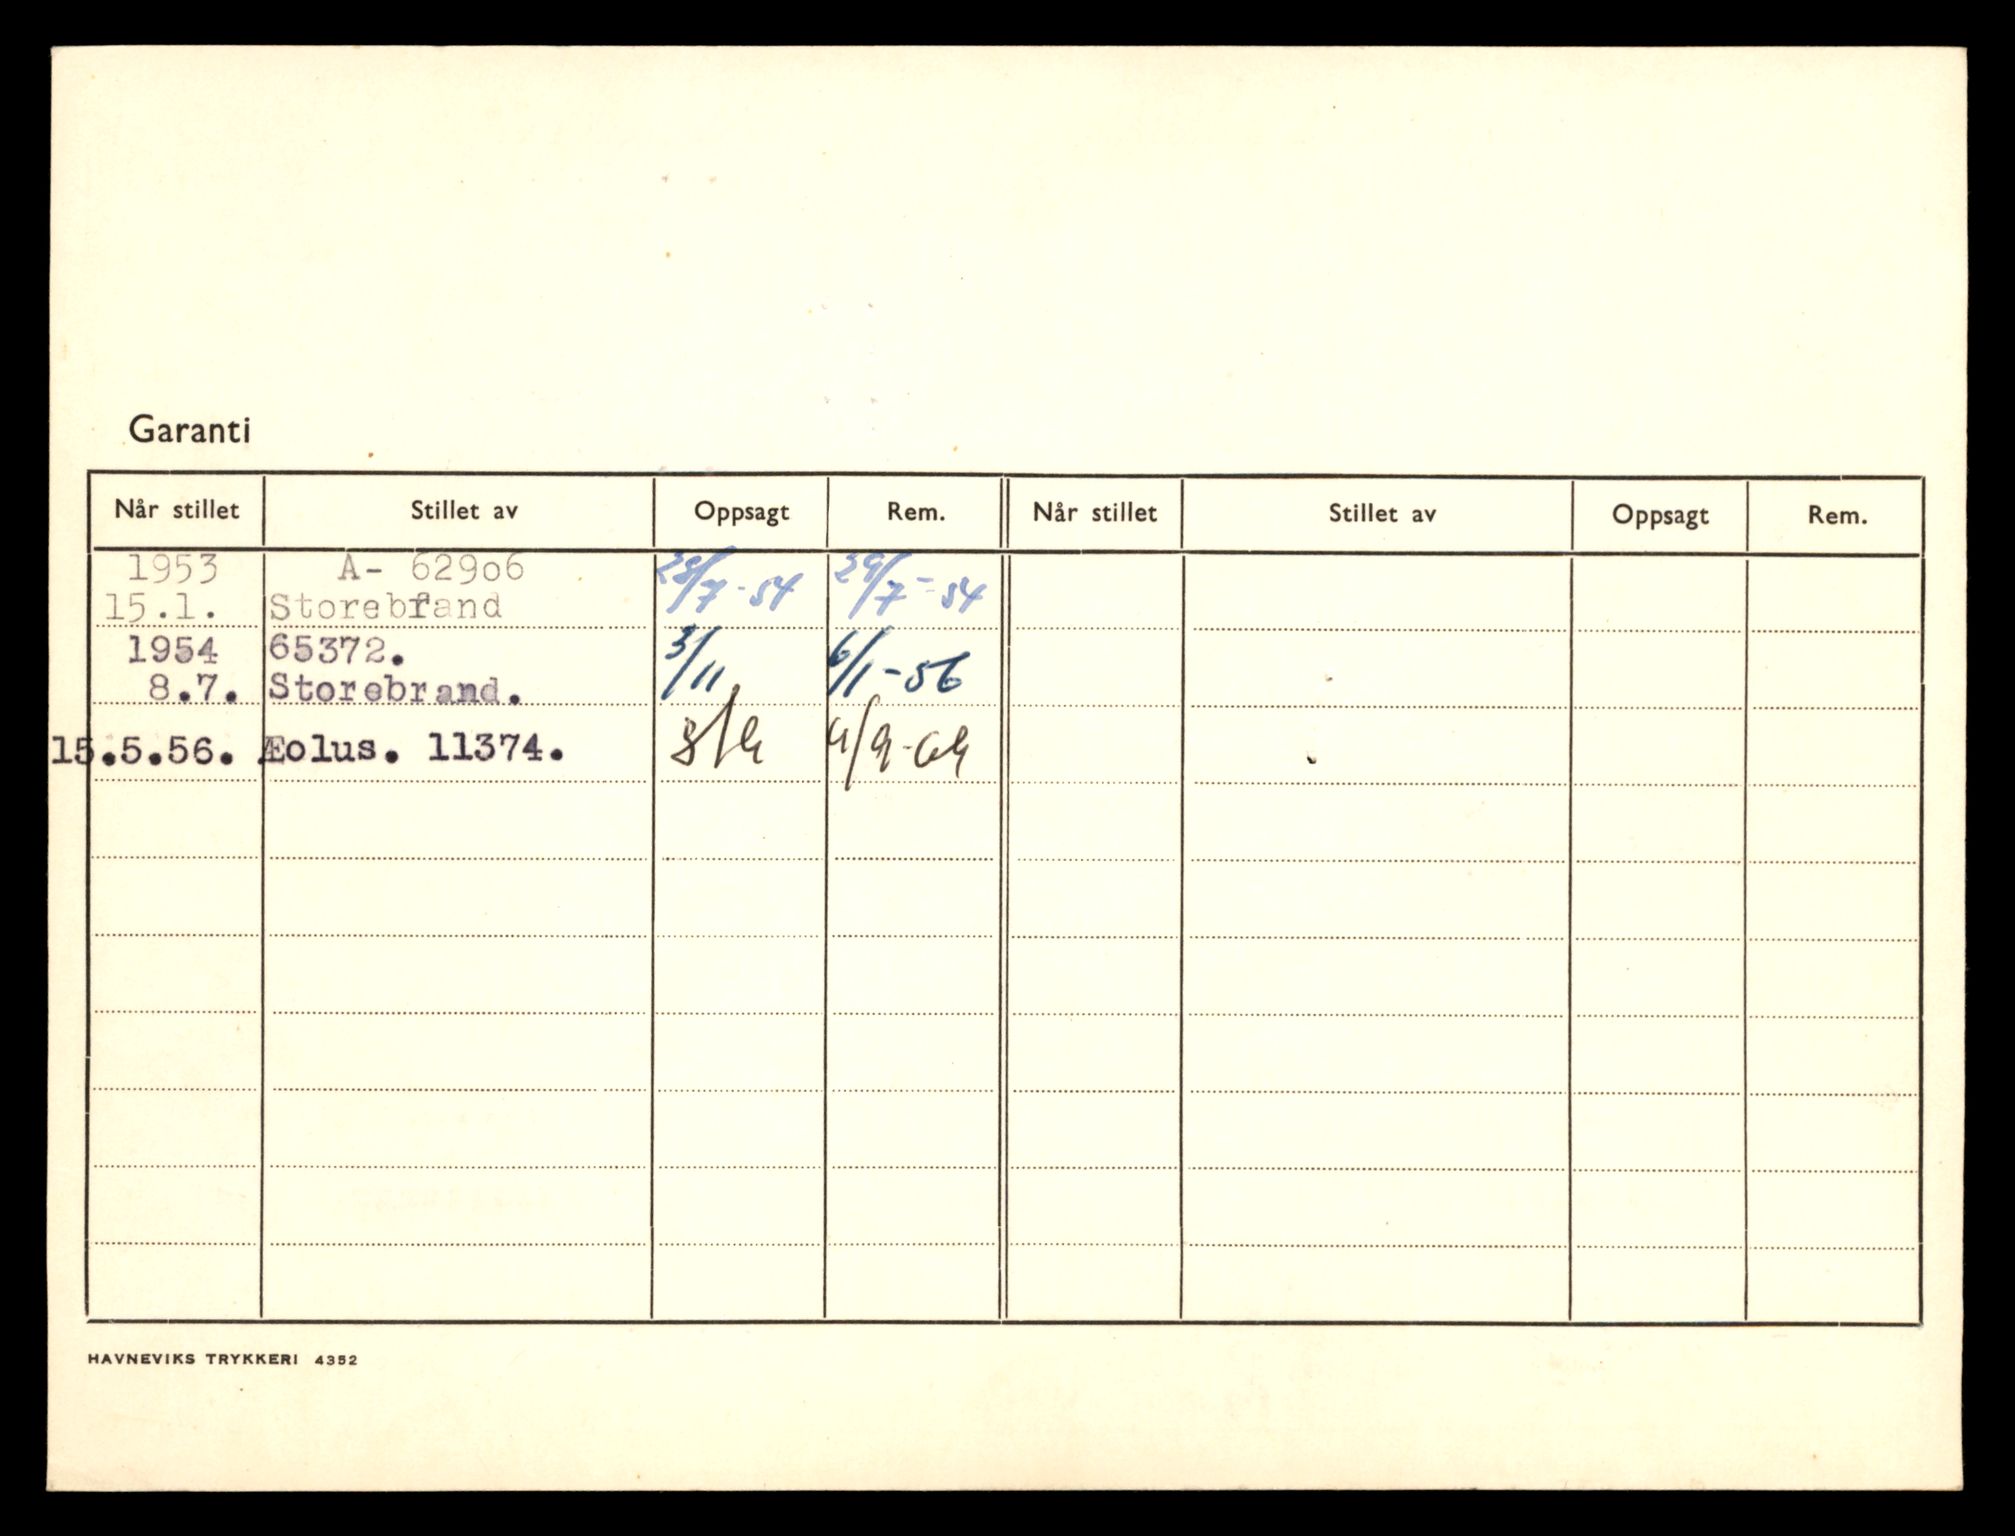 Garanti
Når stillet Stillet av Oppsagt Rem. Når stillet Stillet av Oppsagt Rem.
1953 A- 629o6 28/7-54 29/7-54
15.1. Storebrand
1954 65372. 3/11 6/1-56
8.7. Storebrand.
15.5.56. Æolus. 11374.
HAVNEVIKS TRYKKERI 4352